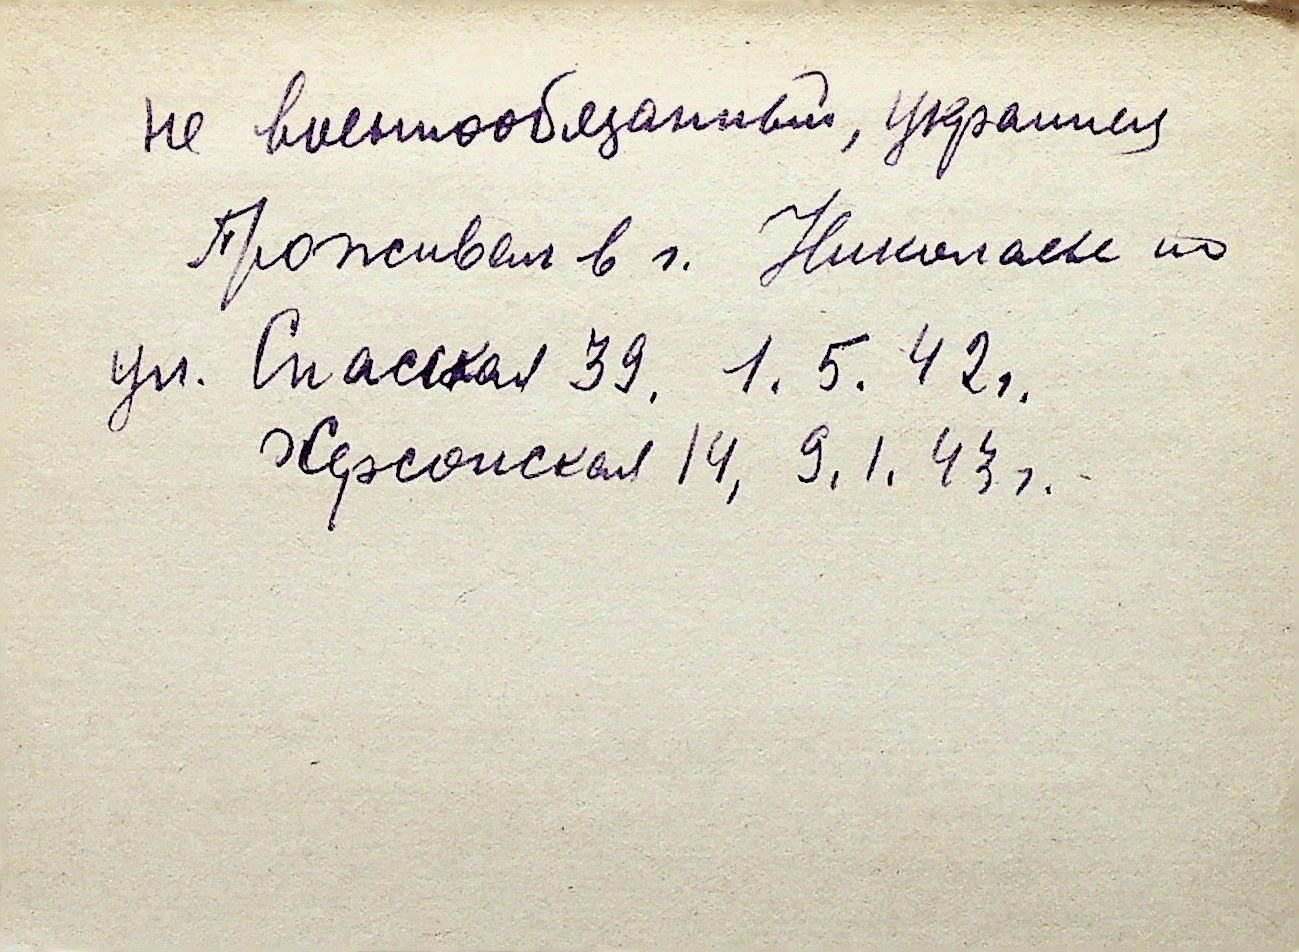 не военнообязанный, украинец
Проживал в г. Николаеве по
ул. Спасская 39, 1. 5. 42г.
Херсонская 14, 9. 1. 43г.